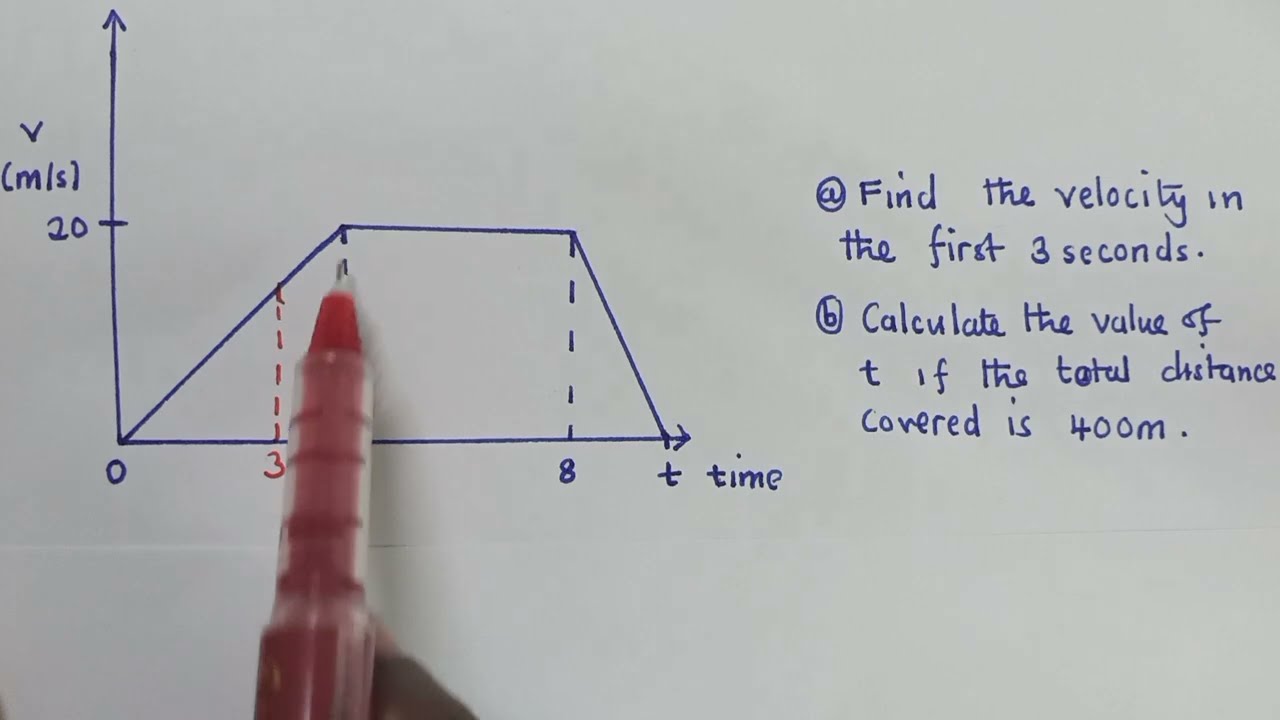 v
(m/s)
20
0
3
8
t time
ⓐ Find the velocity in
the first 3 seconds.
ⓑ Calculate the value of
t if the total distance
covered is 400m.